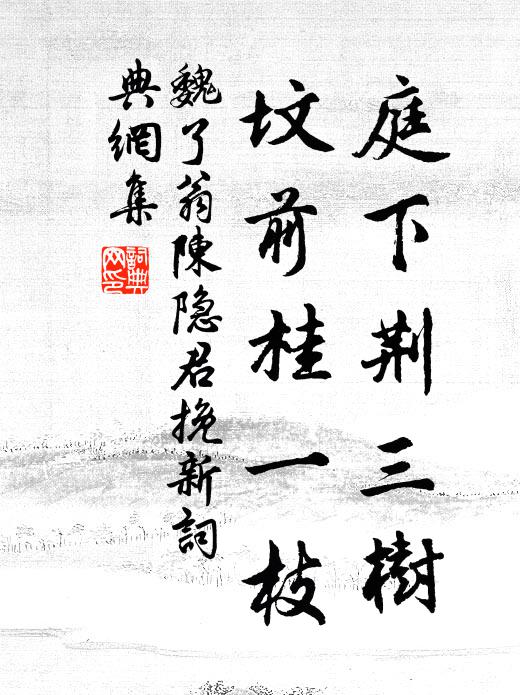 庭下荆三樹
坟前桂一枝
魏了翁陳隐君挽新詞
典網集
詞典
网印